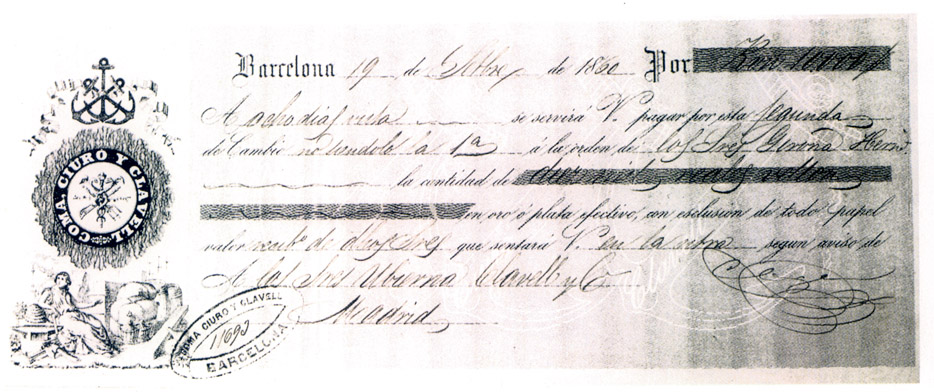 Barcelona 19 de Setbre de 1860 Por Rvon 10.000
A ocho dias vista se servirá V. pagar por esta segunda
de Cambio no siendolo la 1ª á la orden de los Sres Girona Herms
la cantidad de diez mil reales vellon
en oro ó plata efectivo, con esclusion de todo papel
valor recibo de dichos Sres que sentará V. en la cuenta segun aviso de
A los Sres Clavell y Cª
Madrid
COMA, CIURO Y CLAVELL
COMA CIURO Y CLAVELL
11693
BARCELONA